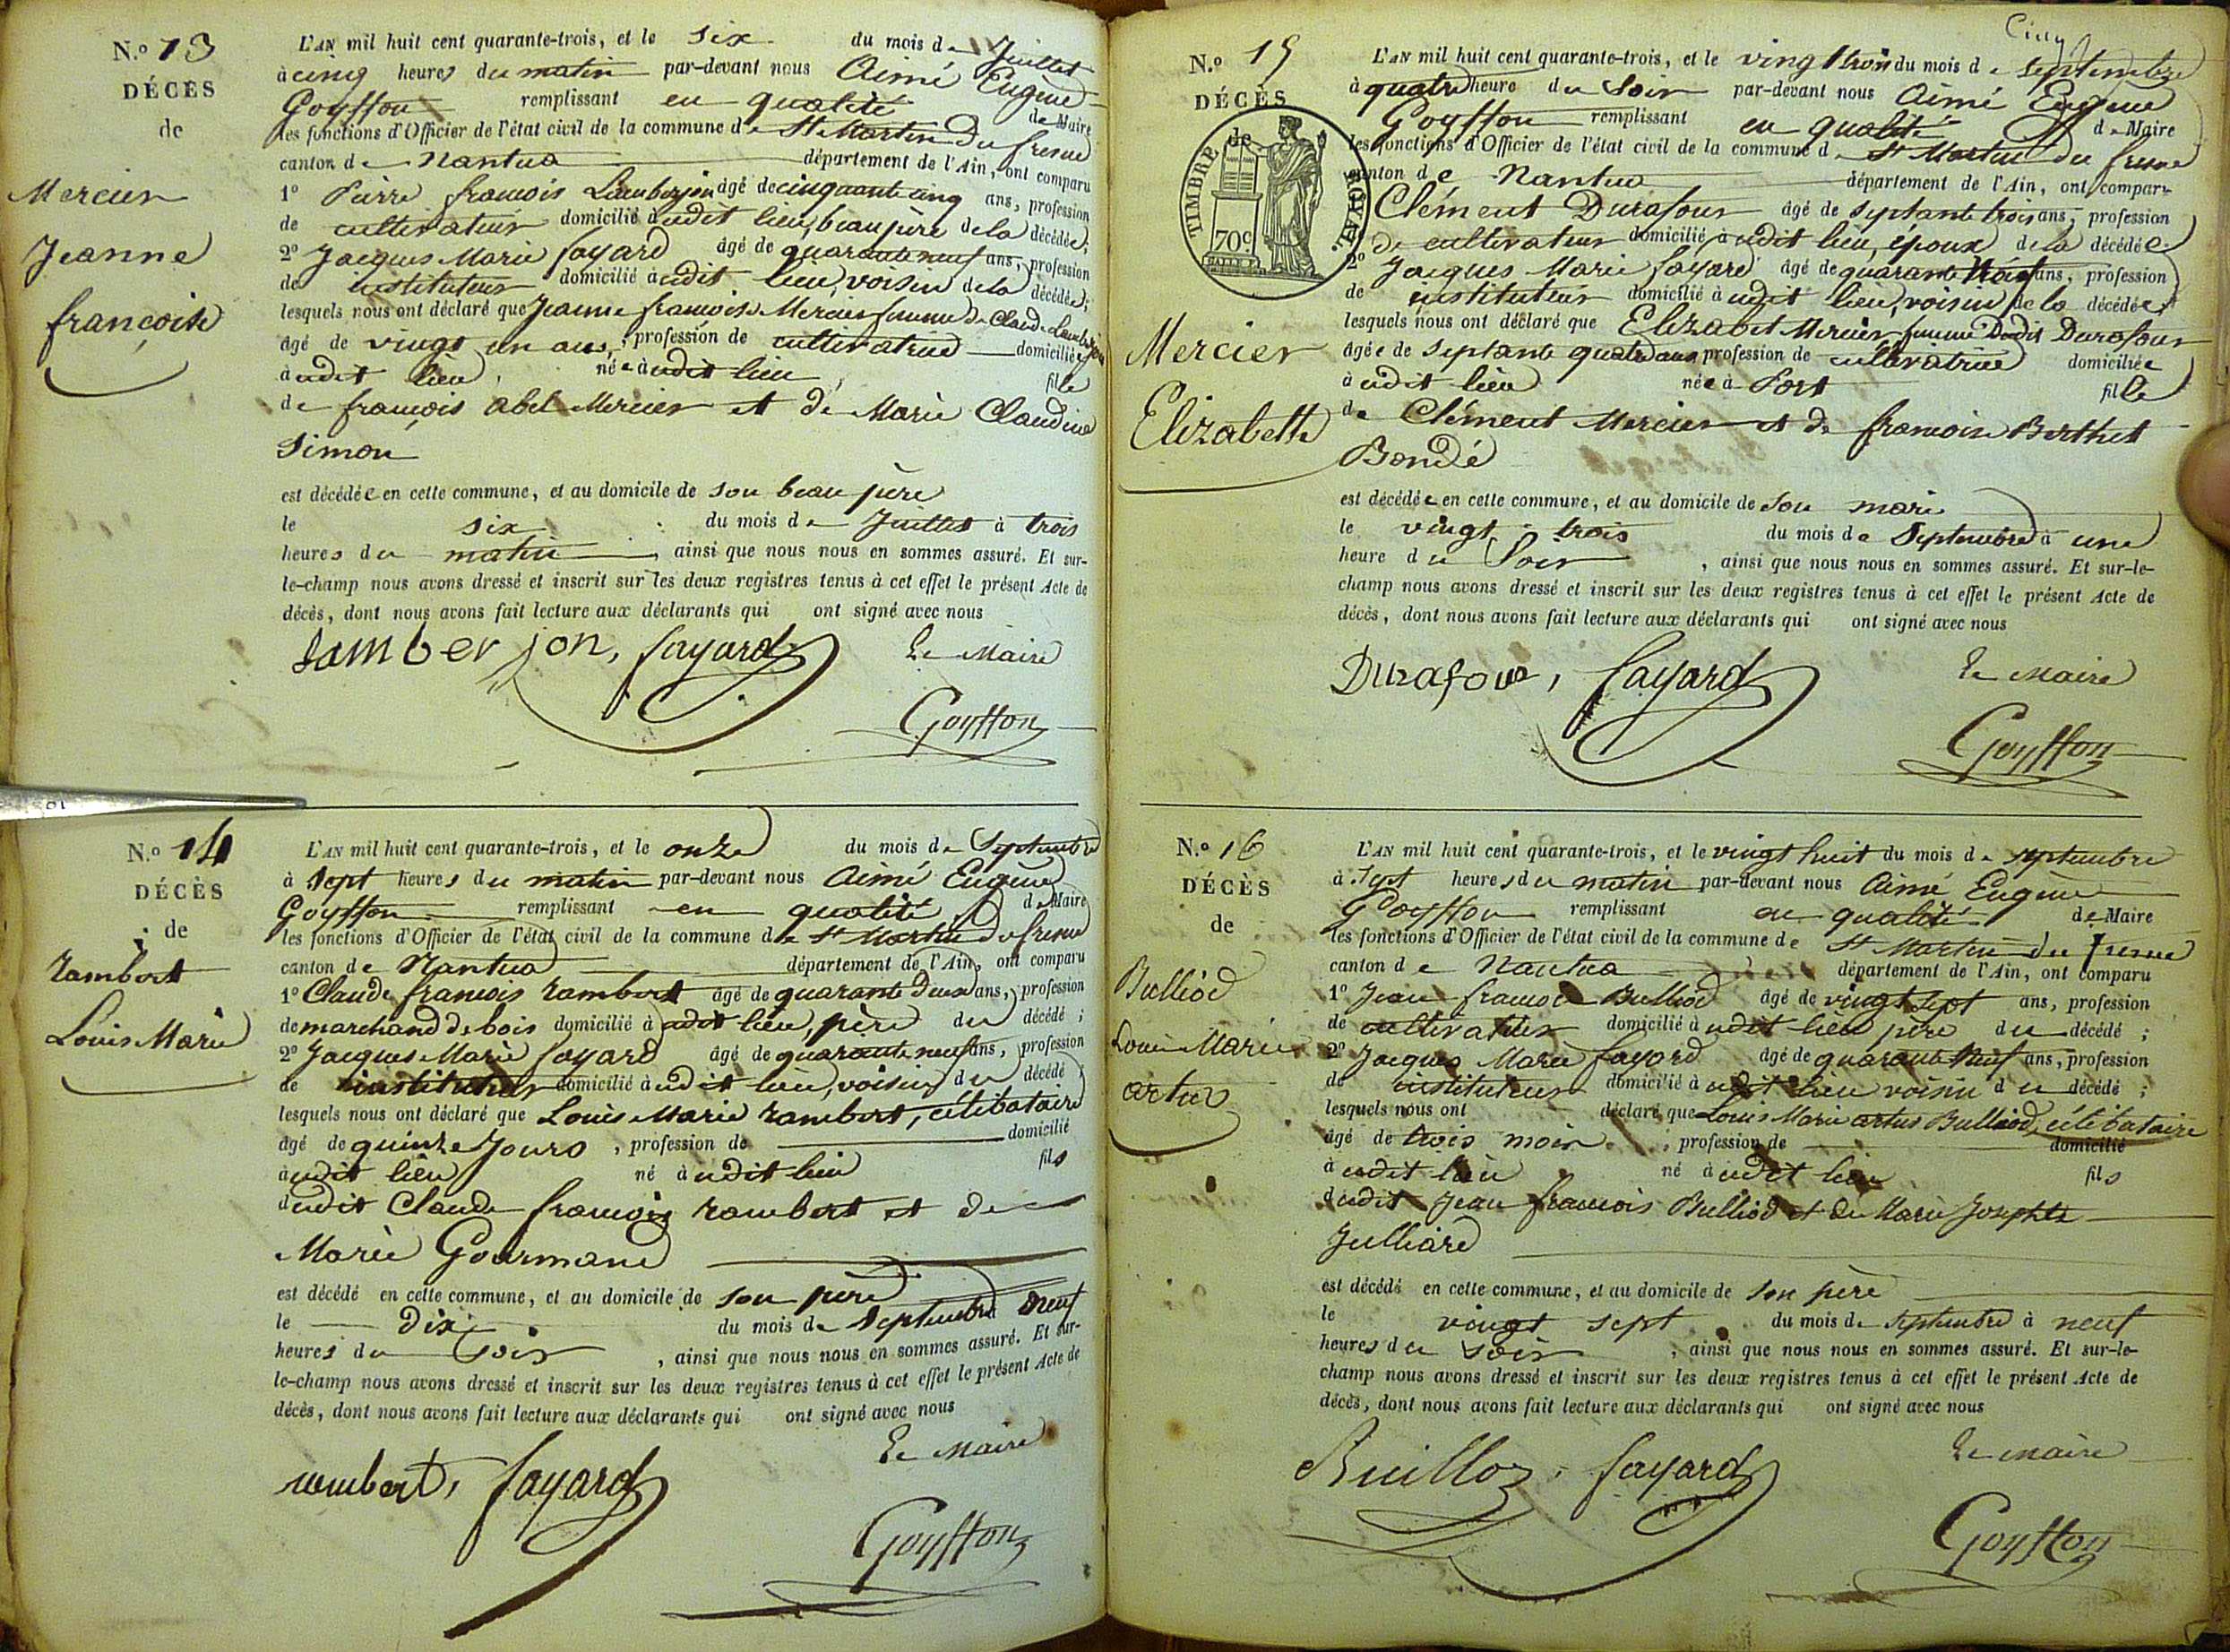 N.º 13
DÉCÈS
de
Mercier
Jeanne
françoise
L'AN mil huit cent quarante-trois, et le six du mois de Juillet
à cinq heures du matin par-devant nous Aimé Eugène
Goyffon remplissant en qualité de Maire
les fonctions d'Officier de l'état civil de la commune de St Martin du fresne
canton de Nantua département de l'Ain, ont comparu
1º Pierre françois Lamberjon âgé de cinquante cinq ans, profession
de cultivateur domicilié audit lieu, beau père de la décédée;
2º Jacques Marie fayard âgé de quarante neuf ans, profession
de instituteur domicilié audit lieu, voisin de la décédée;
lesquels nous ont déclaré que Jeanne françoise Mercier femme de Claude Lamberjon
âgé de vingt un ans, profession de cultivatrice domiciliée
audit lieu, née audit lieu, fille
de françois abel Mercier et de Marie Claudine
Simon
est décédée en cette commune, et au domicile de son beau père
le six du mois de Juillet à trois
heures du matin, ainsi que nous nous en sommes assuré. Et sur-
le-champ nous avons dressé et inscrit sur les deux registres tenus à cet effet le présent Acte de
décès, dont nous avons fait lecture aux déclarants qui ont signé avec nous
Lamberjon, fayard Le Maire
Goyffon
N.º 14
DÉCÈS
de
Rambert
Louis Marie
L'AN mil huit cent quarante-trois, et le onze du mois de Septembre
à Sept heures du matin par-devant nous Aimé Eugène
Goyffon remplissant en qualité de Maire
les fonctions d'Officier de l'état civil de la commune de St Martin du fresne
canton de Nantua département de l'Ain, ont comparu
1º Claude françois Rambert âgé de quarante deux ans, profession
de marchand de bois domicilié à udit lieu, père du décédé;
2º Jacques Marie fayard âgé de quarante neuf ans, profession
de instituteur domicilié à udit lieu, voisin du décédé;
lesquels nous ont déclaré que Louis Marie Rambert, célibataire
âgé de quinze Jours, profession de domicilié
audit lieu né audit lieu fils
dudit Claude françois Rambert et de
Marie Gourmand
est décédé en cette commune, et au domicile de son père
le dix du mois de Septembre neuf
heures du Soir, ainsi que nous nous en sommes assuré. Et sur-
le-champ nous avons dressé et inscrit sur les deux registres tenus à cet effet le présent Acte de
décès, dont nous avons fait lecture aux déclarants qui ont signé avec nous
rembert, fayard Le Maire
Goyffon
Cinq
N.º 15
DÉCÈS
de
TIMBRE ROYAL
70c
Mercier
Elizabette
L'AN mil huit cent quarante-trois, et le vingt trois du mois de Septembre
à quatre heure du Soir par-devant nous Aimé Eugène
Goyffon remplissant en qualité de Maire
les fonctions d'Officier de l'état civil de la commune de St Martin du fresne
canton de Nantua département de l'Ain, ont comparu
Clément Durafour âgé de Septante trois ans, profession
de cultivateur domicilié audit lieu, époux de la décédée
2º Jacques Marie fayard âgé de quarante neuf ans, profession
de instituteur domicilié à udit lieu, voisin de la décédée;
lesquels nous ont déclaré que Elizabet Mercier femme Dudit Durafour
âgée de Septante quatre ans profession de cultivatrice domiciliée
à udit lieu née à Port fille
de Clément Mercier et de françoise Berthet
Bondé
est décédée en cette commune, et au domicile de Son mari
le vingt trois du mois de Septembre à une
heure du Soir, ainsi que nous nous en sommes assuré. Et sur-le-
champ nous avons dressé et inscrit sur les deux registres tenus à cet effet le présent Acte de
décès, dont nous avons fait lecture aux déclarants qui ont signé avec nous
Durafour, fayard Le Maire
Goyffon
N.º 16
DÉCÈS
de
Bulliod
Louis Marie
artus
L'AN mil huit cent quarante-trois, et le vingt huit du mois de septembre
à Sept heures du matin par-devant nous Aimé Eugène
Goyffon remplissant en qualité de Maire
les fonctions d'Officier de l'état civil de la commune de St Martin du fresne
canton de Nantua département de l'Ain, ont comparu
1º Jean françois Bulliod âgé de vingt sept ans, profession
de cultivateur domicilié à udit lieu père du décédé;
2º Jacques Marie fayard âgé de quarante Neuf ans, profession
de instituteur domicilié à udit lieu voisin du décédé;
lesquels nous ont déclaré que Louis Marie artus Bulliod, célibataire
âgé de trois mois, profession de domicilié
à udit lieu né à udit lieu fils
dudit Jean françois Bulliod et de Marie Josephte
Julliard
est décédé en cette commune, et au domicile de Son père
le vingt sept du mois de septembre à neuf
heures du Soir, ainsi que nous nous en sommes assuré. Et sur-le-
champ nous avons dressé et inscrit sur les deux registres tenus à cet effet le présent Acte de
décès, dont nous avons fait lecture aux déclarants qui ont signé avec nous
Builloz, fayard Le Maire
Goyffon